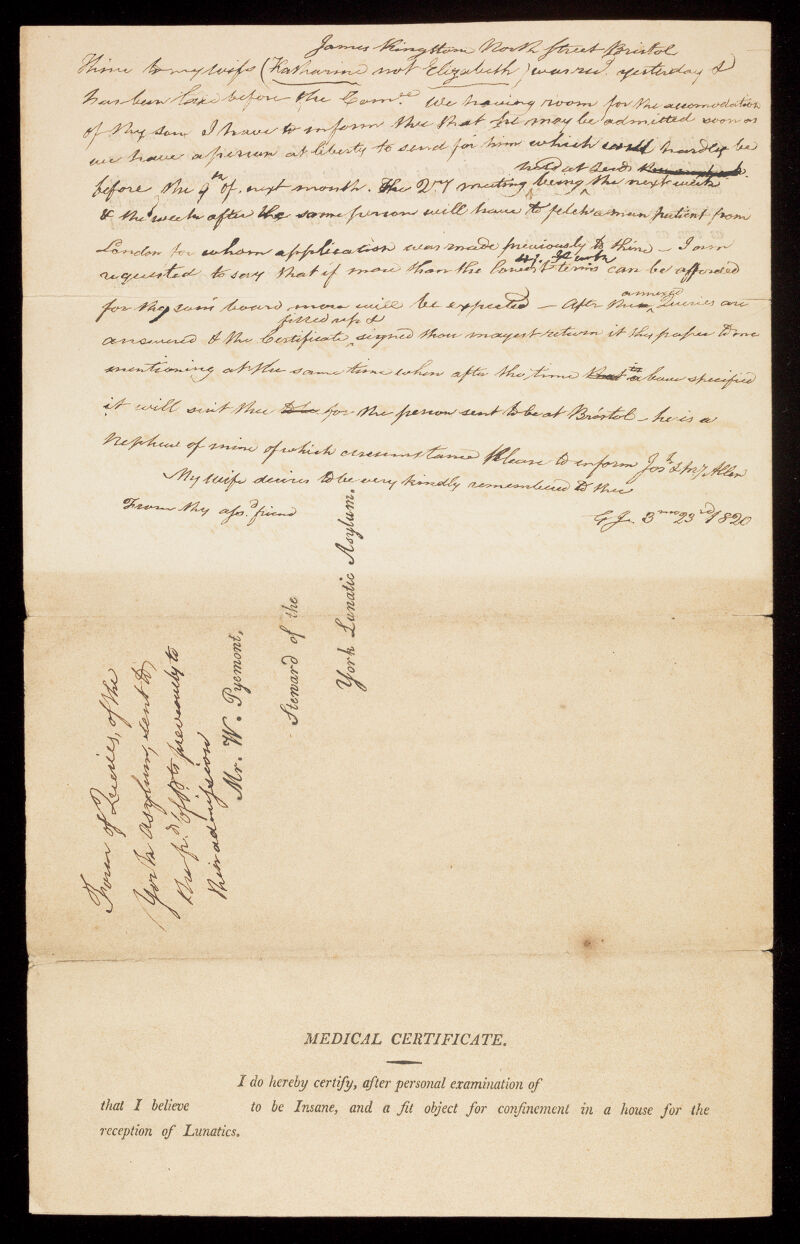 James Kingston North Street Bristol
Thine to my wife (Katharine not Elizabeth) was recd. yesterday &
has been laid before the Come. We having room for the accomodation
of thy son I have to inform thee that he may be admitted soon as
we have a person at liberty to send for him which could hardly be
before the 9th of next month. The Qry meeting being the next week
held at Leeds
& the week after the same person will have to fetch a man patient from
London for whom application was made previously to thine – I am
requested to say that if more than the lowest terms can be afforded
for thy son's board more will be expected – After the annexed Queries are
answered & the Certificate filled up & signed thou mayest return it this paper to me
mentioning at the same time when after the time above specified
it will suit thee for the person sent to be at Bristol – he is a
Nephew of mine of which circumstance please to inform Josh & My Allen
My wife desires to be very kindly remembered to thee
From thy afsd. friend
G J. 3mo 23rd 1820
Form of Queries, of the
York Asylum, sent to
the frds of Pts previously to
their admission
Mr. W. Pyemont,
Steward of the
York Lunatic Asylum.
MEDICAL CERTIFICATE.
I do hereby certify, after personal examination of
that I believe to be Insane, and a fit object for confinement in a house for the
reception of Lunatics.